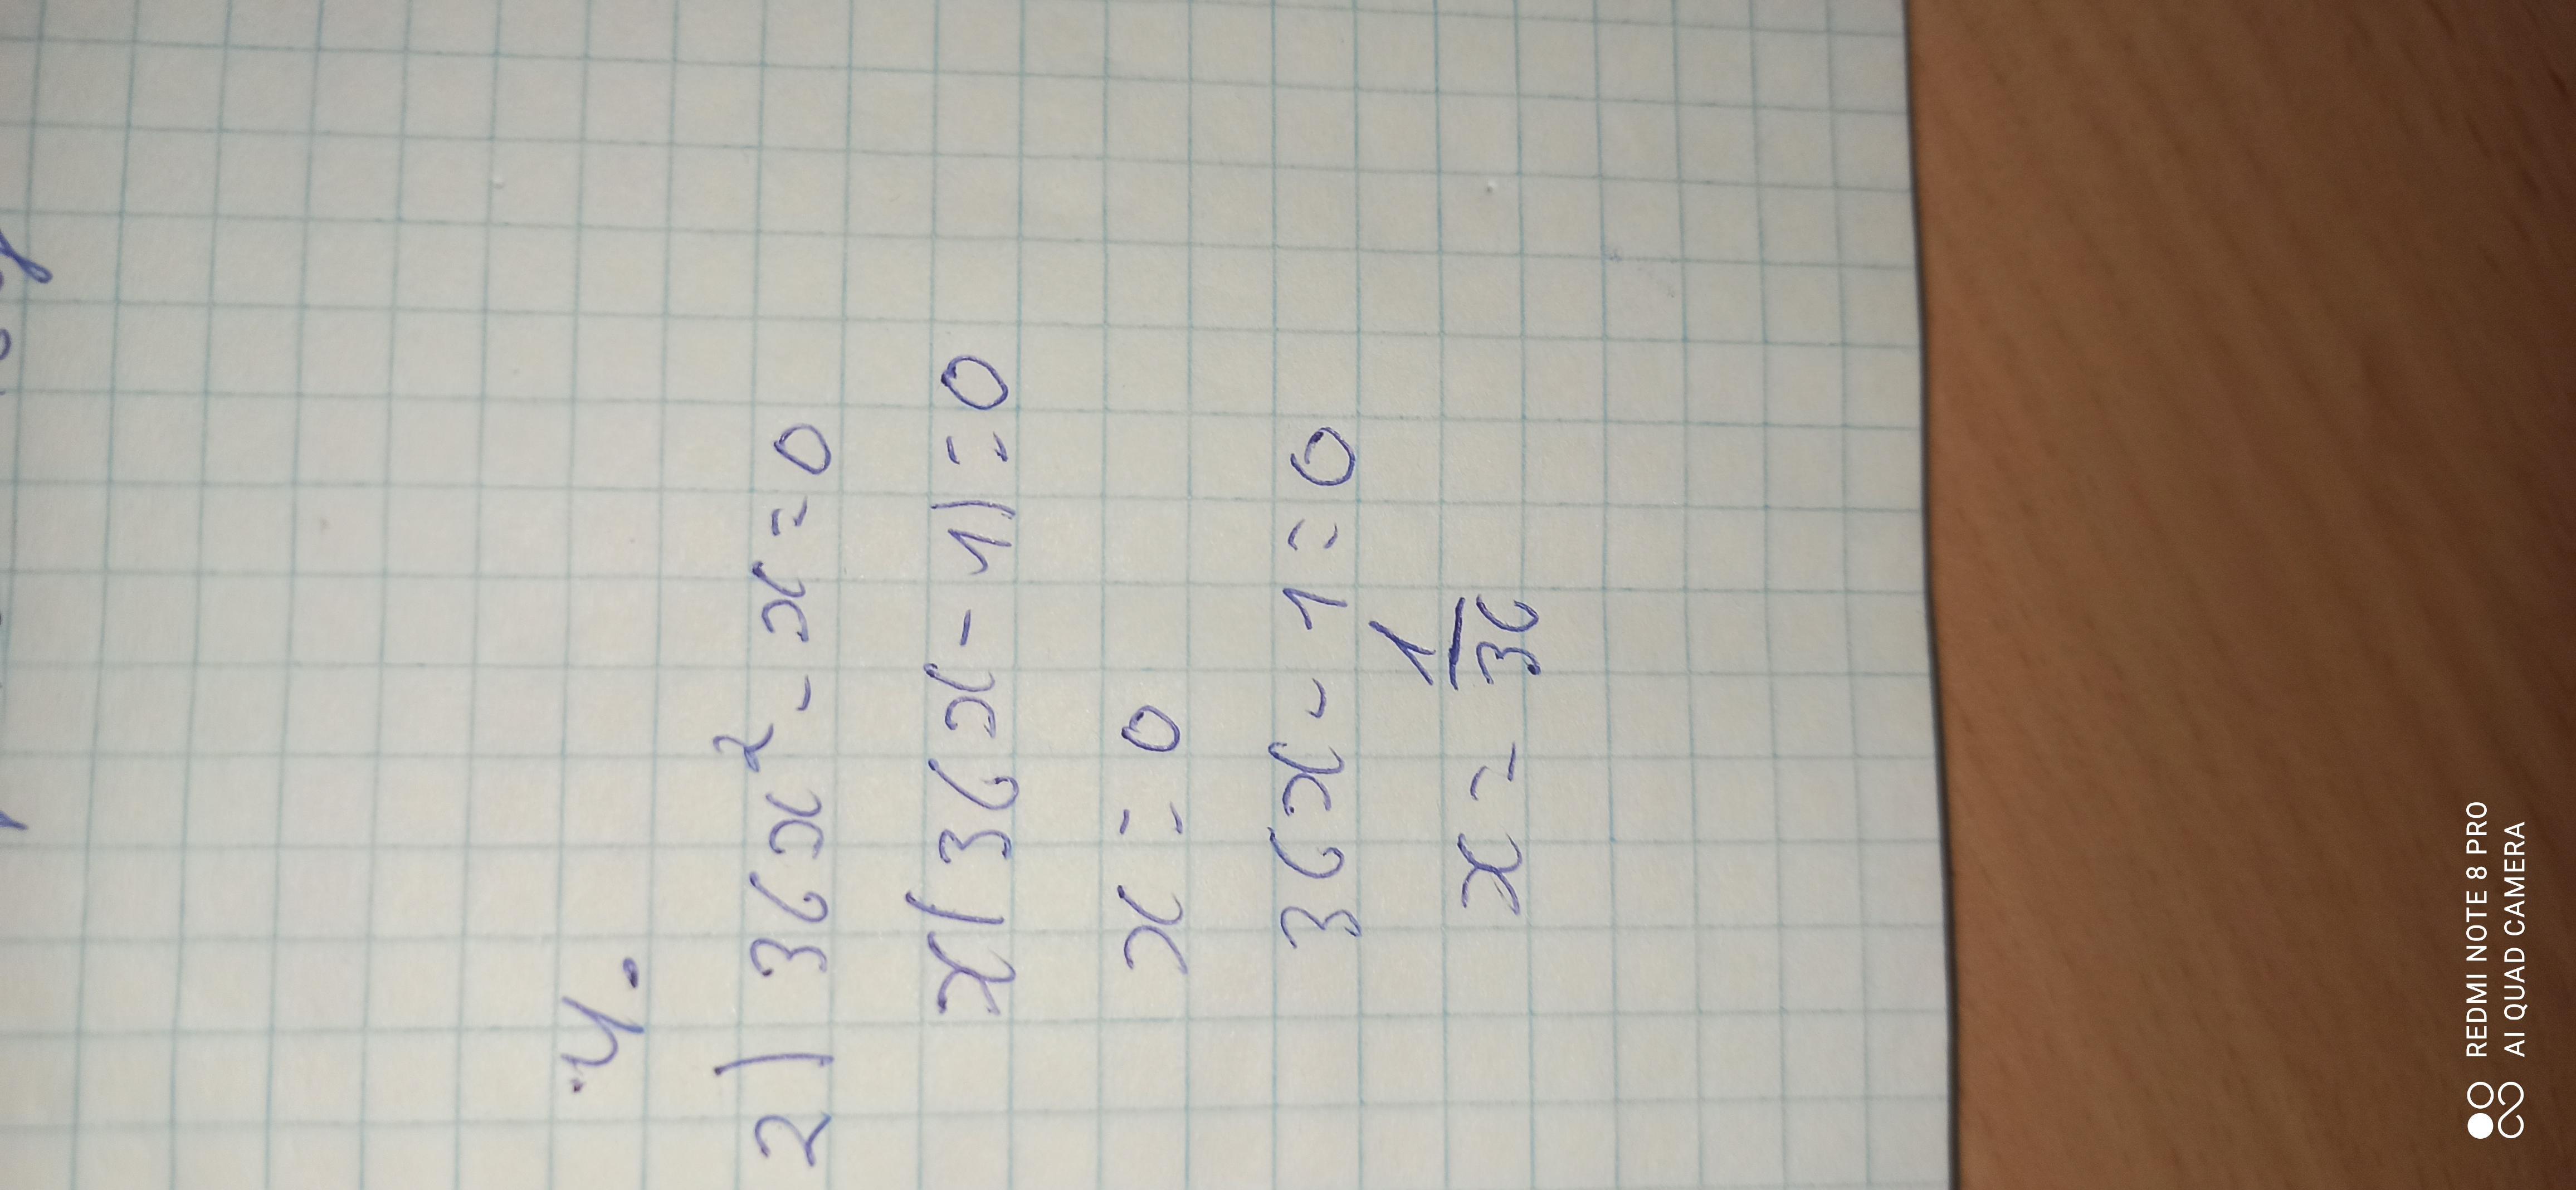 4.
2) 36x² - x = 0
x(36x - 1) = 0
x = 0
36x - 1 = 0
x = 1/36
REDMI NOTE 8 PRO
AI QUAD CAMERA